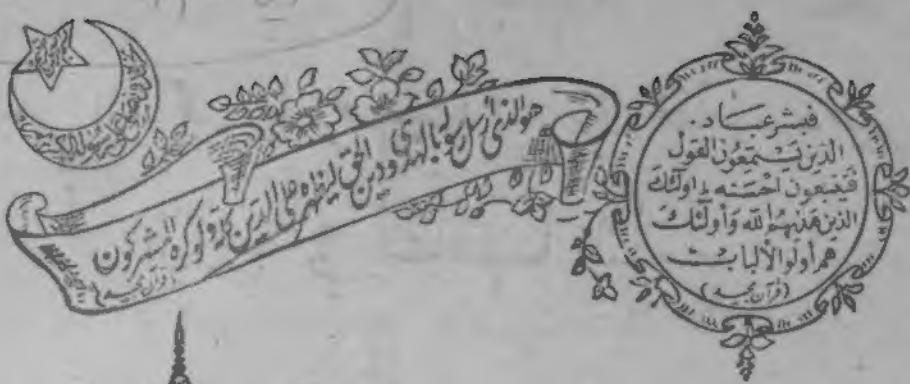 فبشر عباد
الذين يستمعون القول
فيتبعون احسنه اولئك
الذين هديهم الله وأولئك
هم أولوا الألباب
(قرآن مجيد)
هو الذي أرسل رسوله بالهدى ودين الحق ليظهره على الدين كله ولو كره المشركون